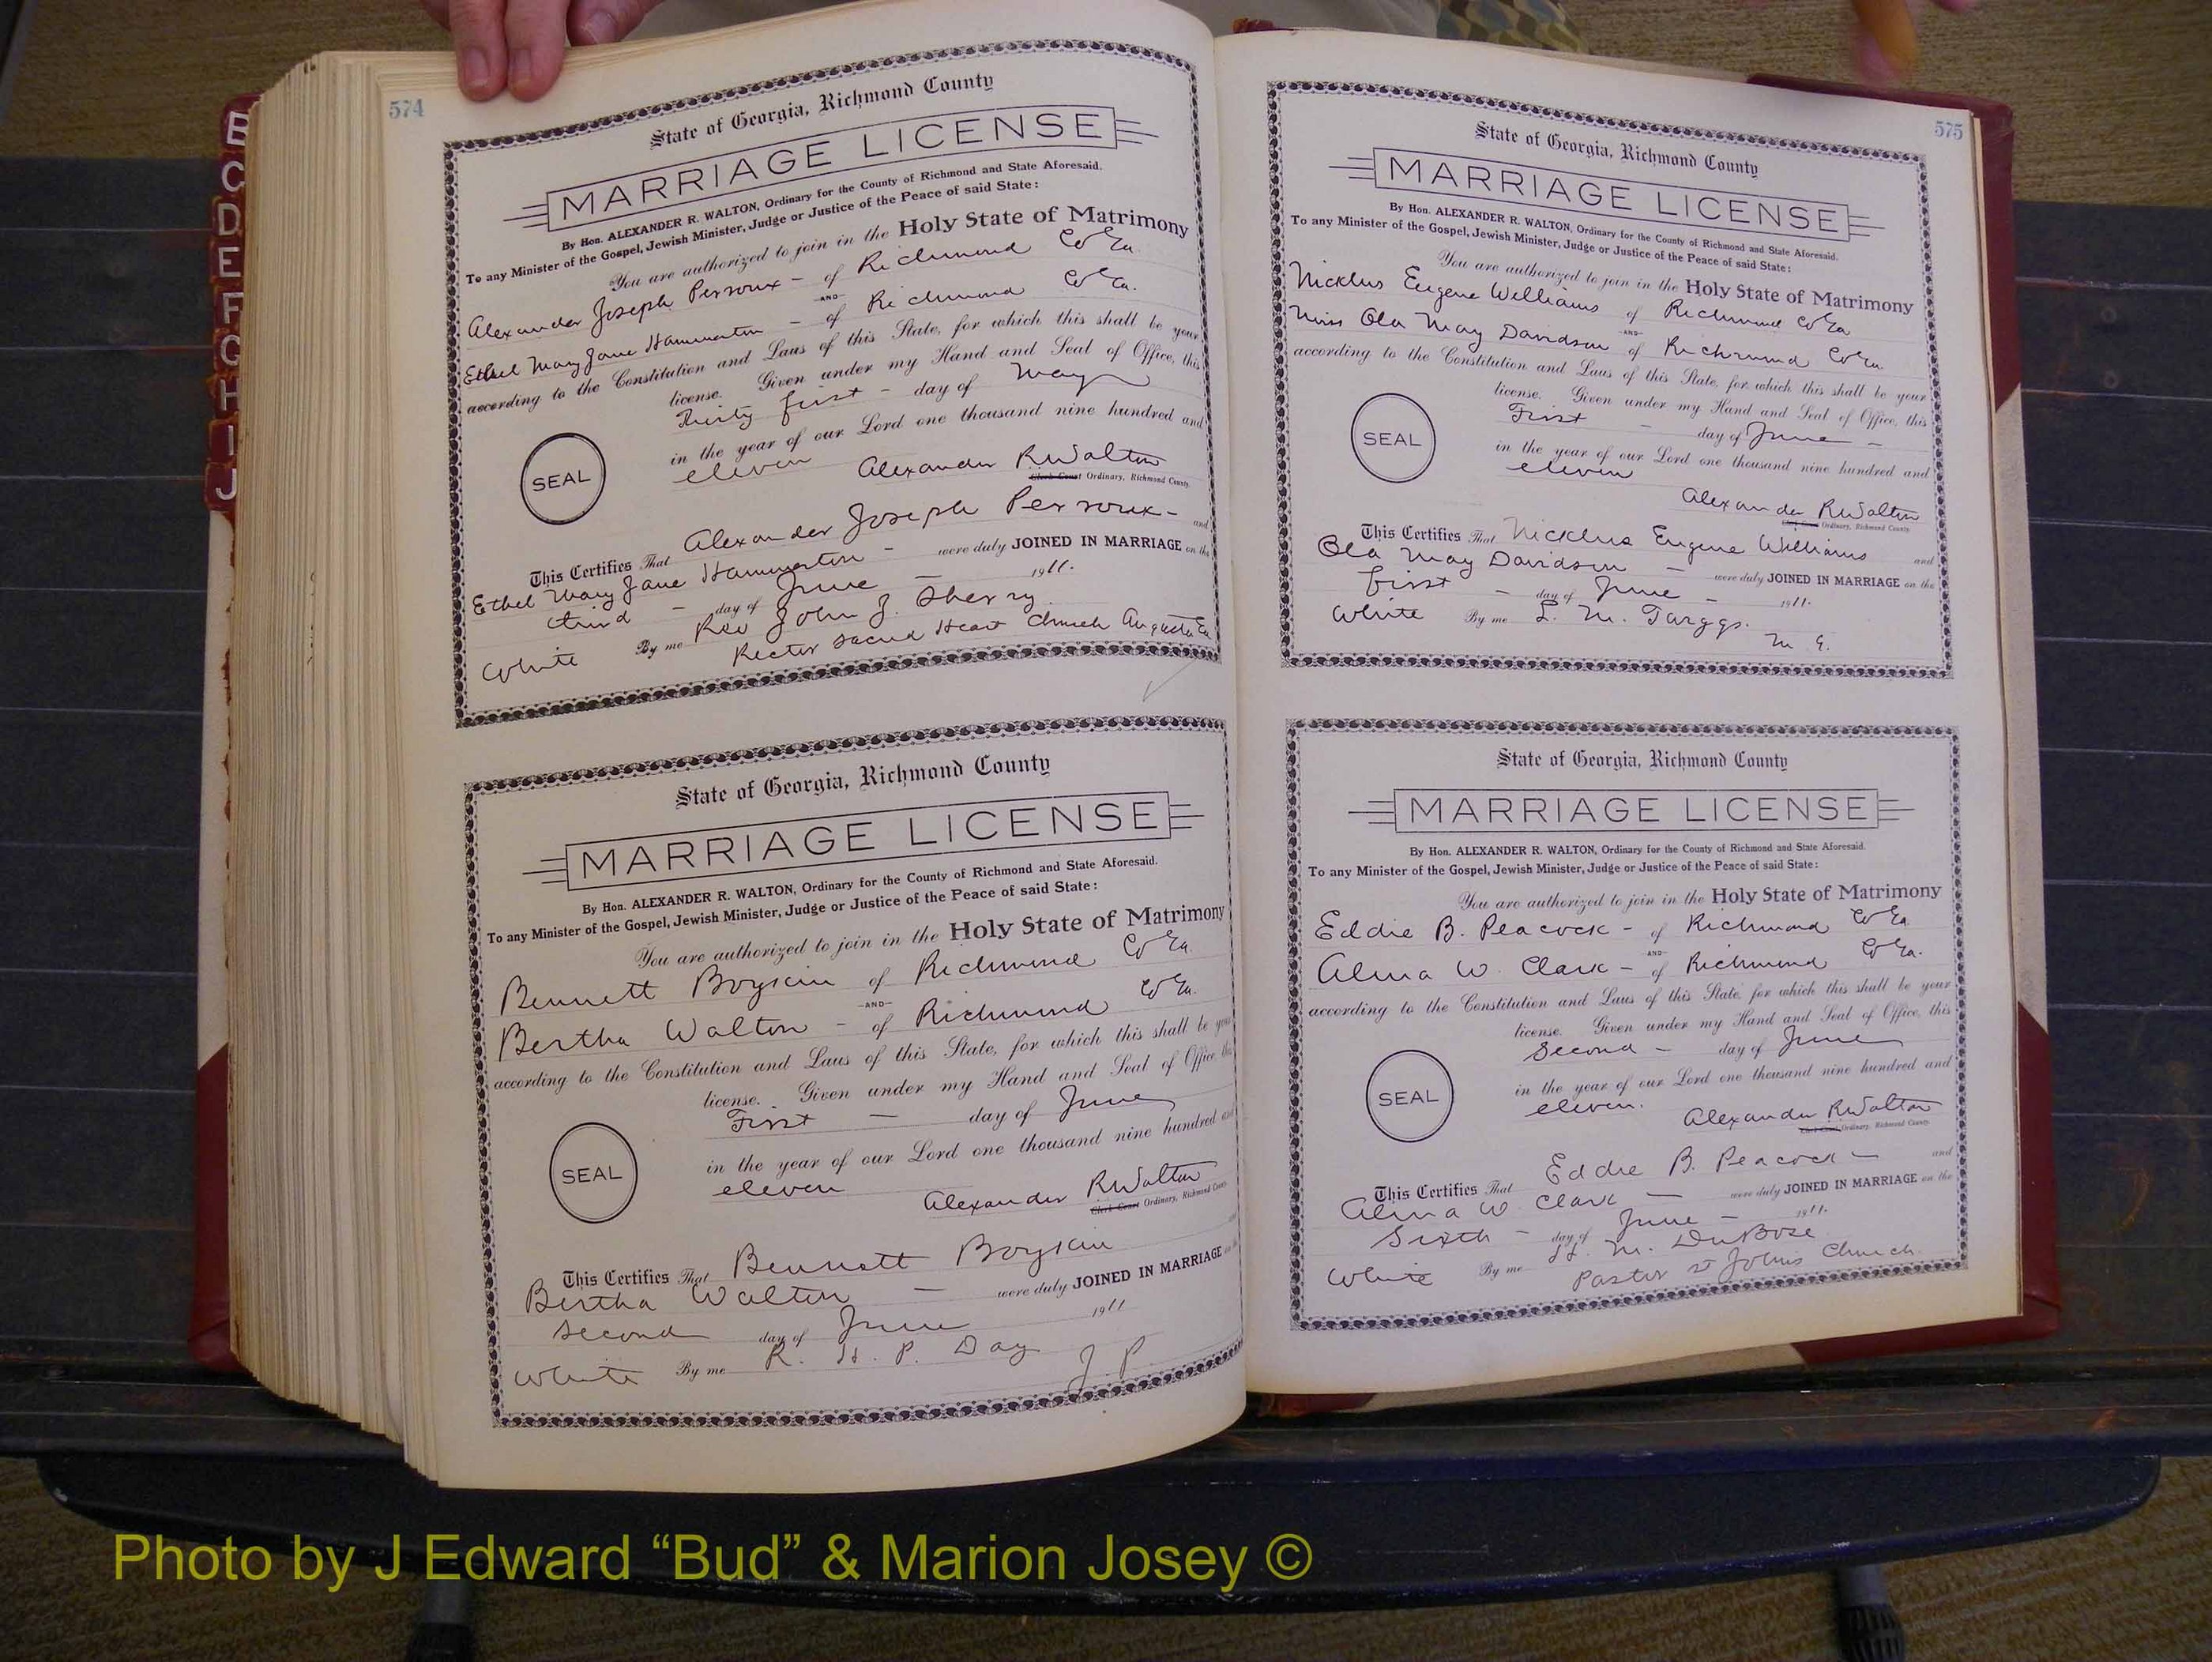 B
C
D
E
F
G
H
I
J
574
State of Georgia, Richmond County
MARRIAGE LICENSE
By Hon. ALEXANDER R. WALTON, Ordinary for the County of Richmond and State Aforesaid.
To any Minister of the Gospel, Jewish Minister, Judge or Justice of the Peace of said State:
You are authorized to join in the Holy State of Matrimony
Alexander Joseph Perroux - of Richmond Co Ga.
-AND-
Ethel Mary Jane Hammerton - of Richmond Co Ga.
according to the Constitution and Laws of this State, for which this shall be your
license. Given under my Hand and Seal of Office, this
Thirty first - day of May
in the year of our Lord one thousand nine hundred and
eleven
SEAL
Alexander R Walton
Clerk Court Ordinary, Richmond County
This Certifies That Alexander Joseph Perroux - and
Ethel Mary Jane Hammerton - were duly JOINED IN MARRIAGE on the
third - day of June - 1911.
White By me Rev John J. Sherry
Rector Sacred Heart Church Augusta Ga
State of Georgia, Richmond County
MARRIAGE LICENSE
By Hon. ALEXANDER R. WALTON, Ordinary for the County of Richmond and State Aforesaid.
To any Minister of the Gospel, Jewish Minister, Judge or Justice of the Peace of said State:
You are authorized to join in the Holy State of Matrimony
Bennett Boykin of Richmond Co Ga.
-AND-
Bertha Walton - of Richmond Co Ga.
according to the Constitution and Laws of this State, for which this shall be your
license. Given under my Hand and Seal of Office, this
First - day of June
in the year of our Lord one thousand nine hundred and
eleven
SEAL
Alexander R Walton
Clerk Court Ordinary, Richmond County
This Certifies That Bennett Boykin
Bertha Walton - were duly JOINED IN MARRIAGE on the
second day of June 1911
White By me R. H. P. Day J P
575
State of Georgia, Richmond County
MARRIAGE LICENSE
By Hon. ALEXANDER R. WALTON, Ordinary for the County of Richmond and State Aforesaid.
To any Minister of the Gospel, Jewish Minister, Judge or Justice of the Peace of said State:
You are authorized to join in the Holy State of Matrimony
Nicklus Eugene Williams of Richmond Co Ga
-AND-
Miss Ola May Davidson of Richmond Co Ga
according to the Constitution and Laws of this State, for which this shall be your
license. Given under my Hand and Seal of Office, this
First - day of June -
in the year of our Lord one thousand nine hundred and
eleven
SEAL
Alexander R Walton
Clerk Court Ordinary, Richmond County
This Certifies That Nicklus Eugene Williams and
Ola May Davidson - were duly JOINED IN MARRIAGE on the
first - day of June - 1911.
White By me L. M. Targgs.
M G.
State of Georgia, Richmond County
MARRIAGE LICENSE
By Hon. ALEXANDER R. WALTON, Ordinary for the County of Richmond and State Aforesaid.
To any Minister of the Gospel, Jewish Minister, Judge or Justice of the Peace of said State:
You are authorized to join in the Holy State of Matrimony
Eddie B. Peacock - of Richmond Co Ga
-AND-
Alma W. Clark - of Richmond Co Ga.
according to the Constitution and Laws of this State, for which this shall be your
license. Given under my Hand and Seal of Office, this
Second - day of June
in the year of our Lord one thousand nine hundred and
eleven.
SEAL
Alexander R Walton
Clerk Court Ordinary, Richmond County
This Certifies That Eddie B. Peacock - and
Alma W Clark - were duly JOINED IN MARRIAGE on the
Sixth - day of June - 1911.
White By me M. DuBose
Pastor St Johns Church
Photo by J Edward “Bud” & Marion Josey ©